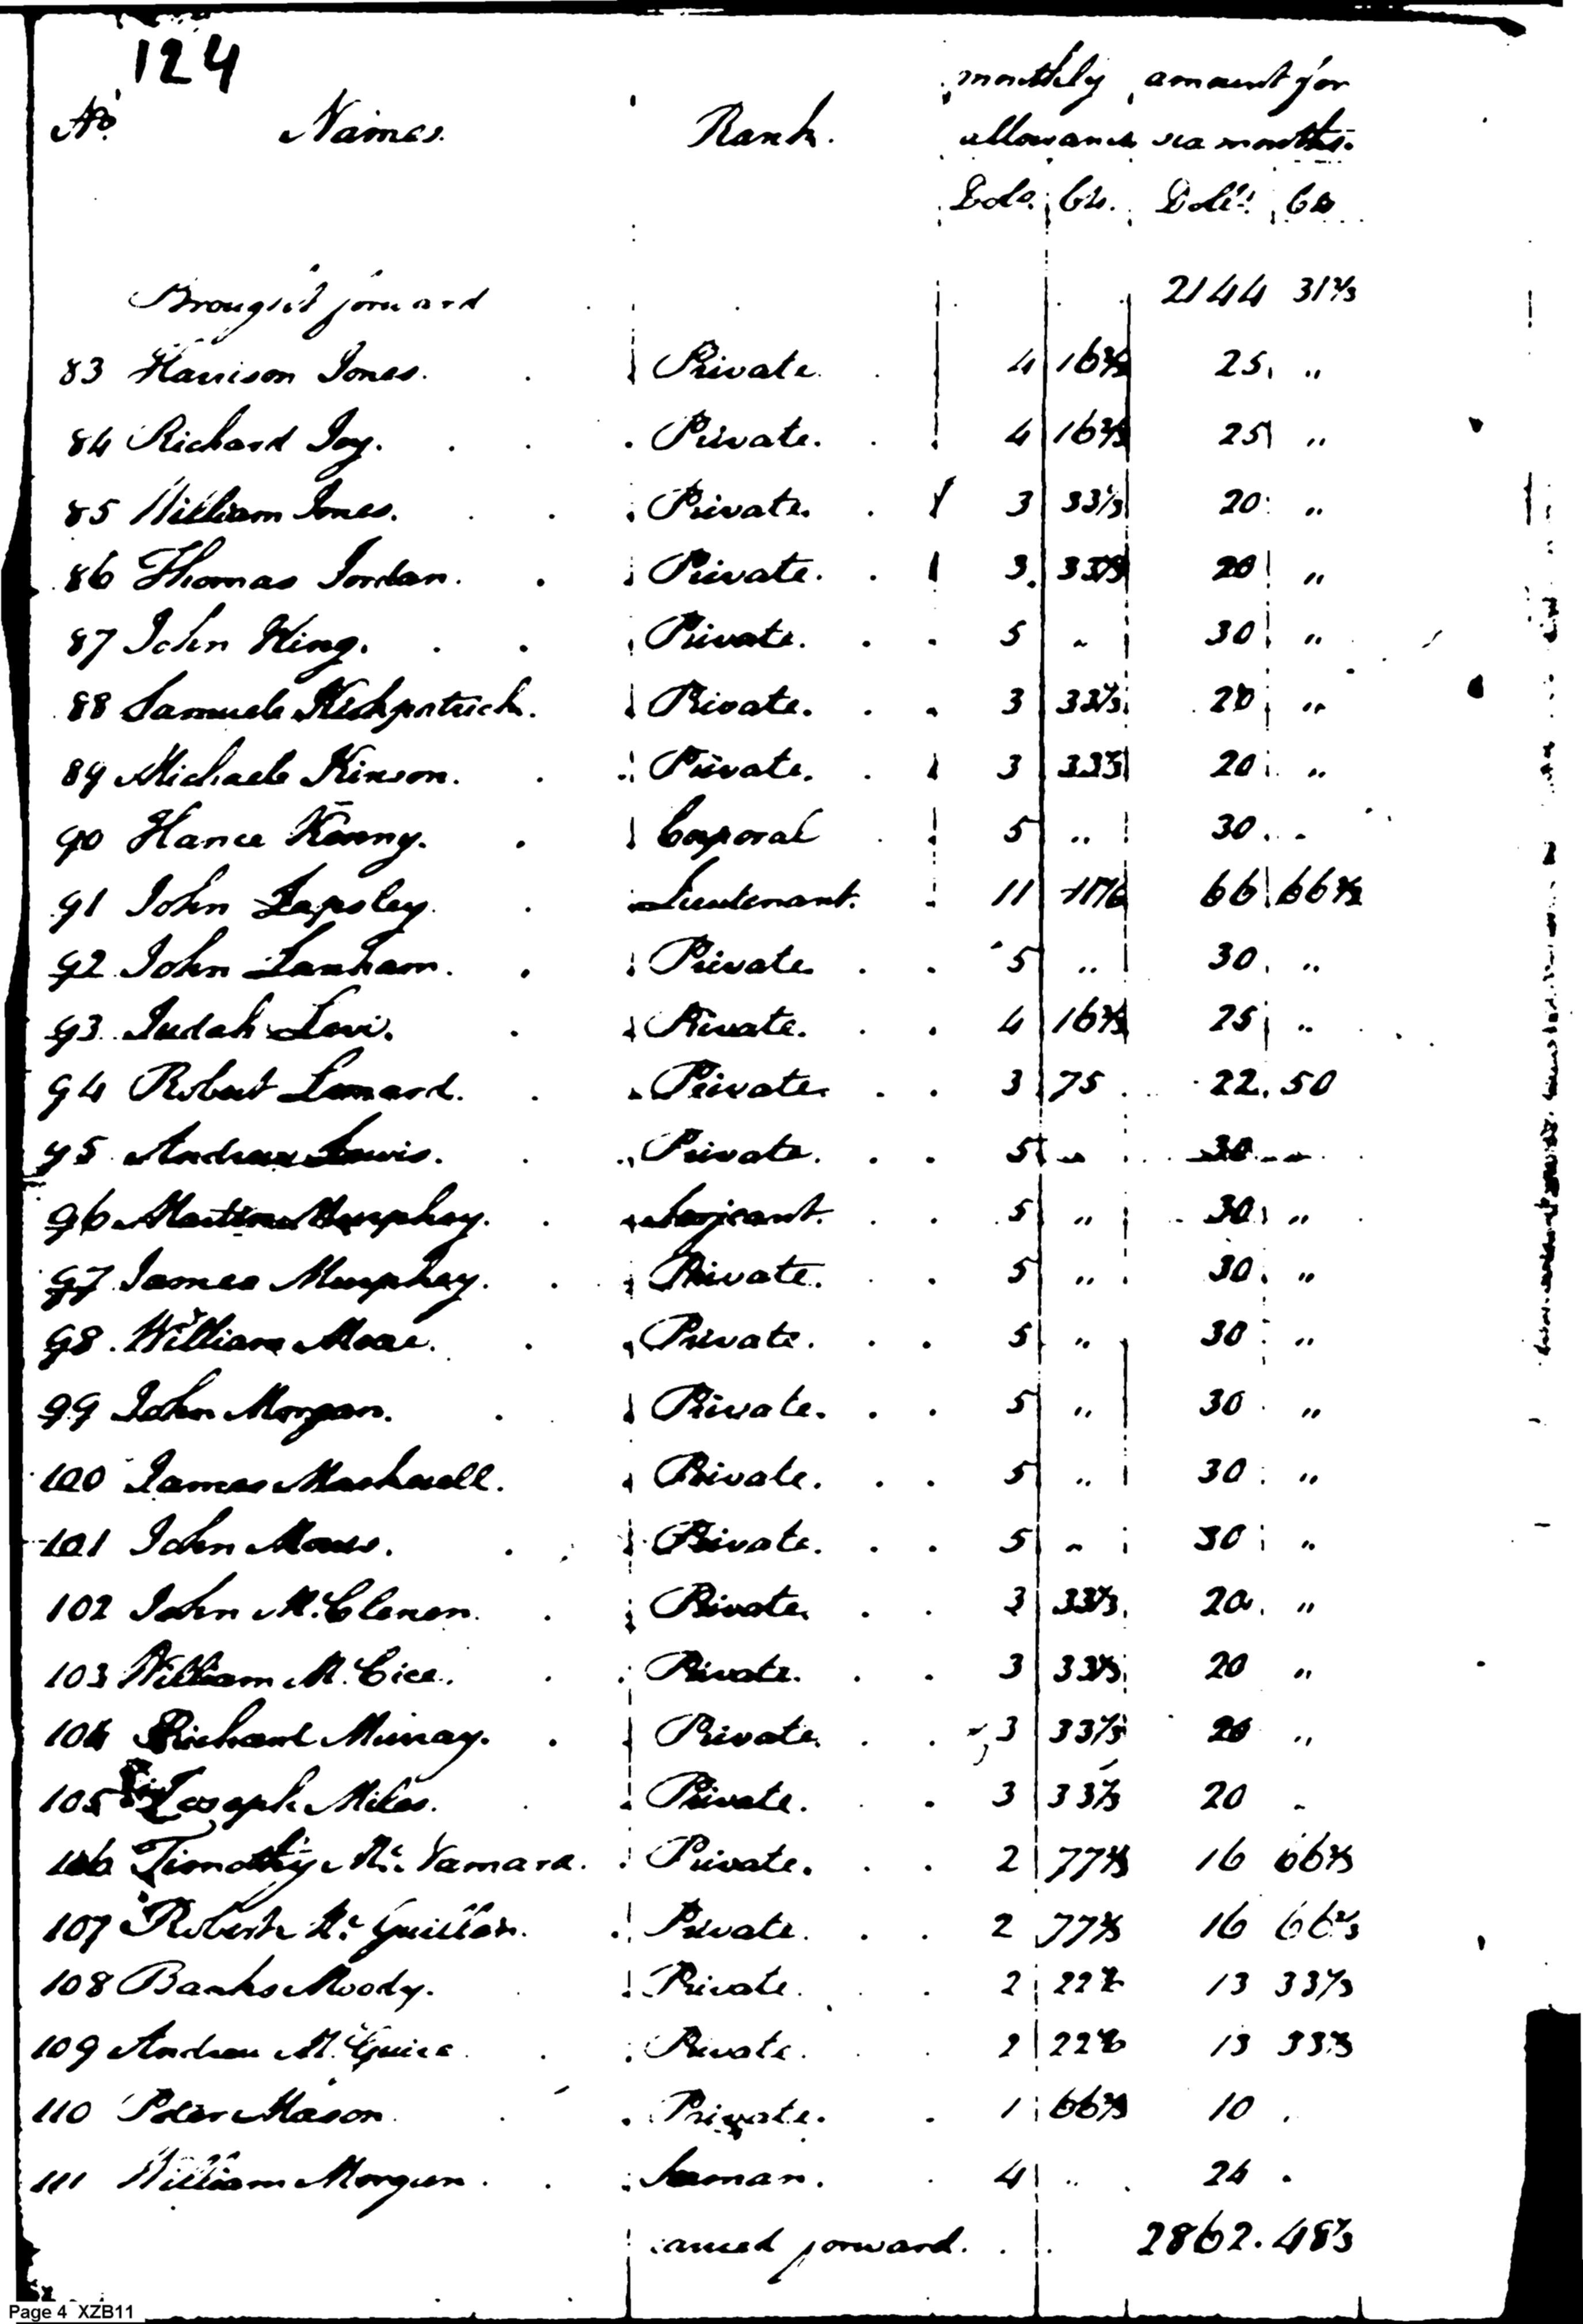 124
monthly amount for
No. Names. Rank. allowance six months.
Dols. Cts. Dolls. Cts
Brought forward 2144 31 2/3
83 Harrison Jones. Private. 4 16 2/3 25 „
84 Richard Joy. Private. 4 16 2/3 25 „
85 William Jones. Private. 3 33 1/3 20 „
86 Thomas Jordan. Private. 3 33 1/3 20 „
87 John King. Private. 5 „ 30 „
88 Samuel Kirkpatrick. Private. 3 33 1/3 20 „
89 Michael Kinson. Private. 3 33 1/3 20 „
90 Hance Kenny. Corporal 5 „ 30 „
91 John Lapsley. Lieutenant. 11 66 66 2/3
92 John Lanham. Private. 5 „ 30 „
93 Judah Levi. Private. 4 16 2/3 25 „
94 Robert Lenard. Private 3 75 22 50
95 Andrew Lewis. Private. 5 „ 30 „
96 Martin Murphey. Serjeant. 5 „ 30 „
97 James Murphey. Private. 5 „ 30 „
98 William Private. 5 „ 30 „
99 John Morgan. Private. 5 „ 30 „
100 James Private. 5 „ 30 „
101 John Private. 5 „ 30 „
102 John McClenen. Private. 3 33 1/3 20 „
103 William Private. 3 33 1/3 20 „
104 Richard Murray. Private. 3 33 1/3 20 „
105 Joseph Miles. Private. 3 33 1/3 20 „
106 Timothy McNamara. Private. 2 77 16 66 2/3
107 Robert Private. 2 77 16 66 2/3
108 Banks Moody. Private. 2 22 13 33 1/3
109 Andrew McGuire. Private. 2 22 13 33 1/3
110 Peter Mason. Private. 1 66 2/3 10
111 William Morgan. Seaman. 4 „ 24
carried forward. 2862. 48 1/3
Page 4 XZB11